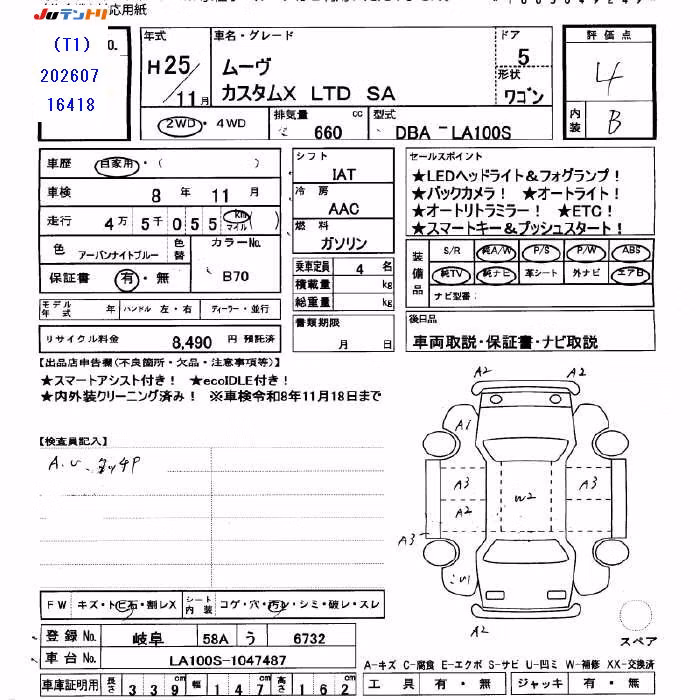 JUテントリ 応用紙
(T1)
O.
202607
16418
年式
H25/11月
車名・グレード
ムーヴ
カスタムX LTD SA
ドア
5
形状
ワゴン
評価点
4
内装
B
2WD・4WD
排気量 cc
660
型式
DBA - LA100S
車歴 自家用・( )
車検 8 年 11 月
走行 4万 5千 0 5 5 km マイル ( )
色 アーバンナイトブルー 色替
カラーNo. B70
保証書 有・無
シフト
IAT
冷房
AAC
燃料
ガソリン
乗車定員 4 名
積載量 kg
総重量 kg
セールスポイント
★LEDヘッドライト&フォグランプ!
★バックカメラ! ★オートライト!
★オートリトラミラー! ★ETC!
★スマートキー&プッシュスタート!
装備品
S/R 純A/W P/S P/W ABS
純TV 純ナビ 革シート 外ナビ エアB
ナビ型番:
モデル年式 年 ハンドル 左・右 ディーラー・並行
リサイクル料金 8,490 円 預託済
書類期限
月 日
後日品
車両取説・保証書・ナビ取説
【出品店申告欄(不良箇所・欠品・注意事項等)】
★スマートアシスト付き! ★ecoIDLE付き!
★内外装クリーニング済み! ※車検令和8年11月18日まで
【検査員記入】
A2
A2
A1
A3
A2
A3
W2
A3
A2
スペア
FW キズ・トビ石・割レX シート内装 コゲ・穴・汚レ・シミ・破レ・スレ
登録No. 岐阜 58A う 6732
車台No. LA100S-1047487
車庫証明用 長さ 339cm 幅 147cm 高さ 162cm
A-キズ C-腐食 E-エクボ S-サビ U-凹ミ W-補修 XX-交換済
工具 有・無 ジャッキ 有・無